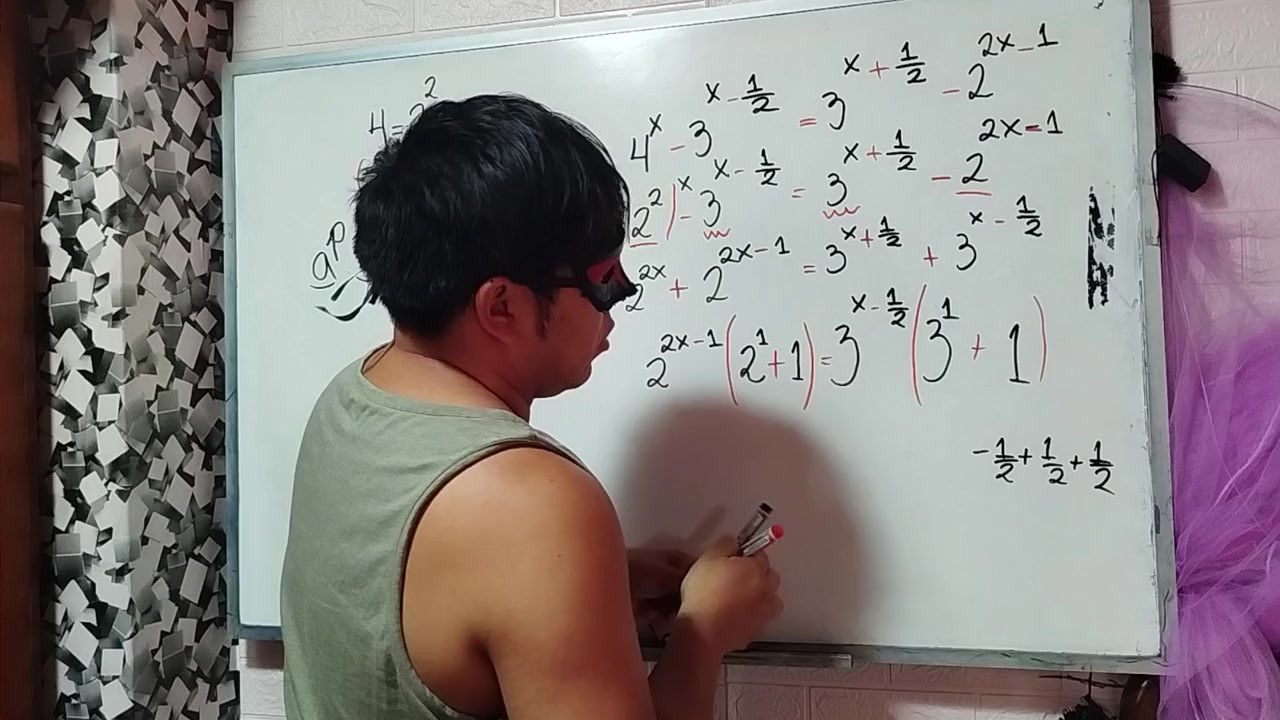 4^x - 3^{x - 1/2} = 3^{x + 1/2} - 2^{2x - 1}
2^2)^x - 3^{x - 1/2} = 3^{x + 1/2} - 2^{2x - 1}
2^{2x} + 2^{2x - 1} = 3^{x + 1/2} + 3^{x - 1/2}
2^{2x - 1} (2^1 + 1) = 3^{x - 1/2} (3^1 + 1)
- 1/2 + 1/2 + 1/2
4 = 2
a^p